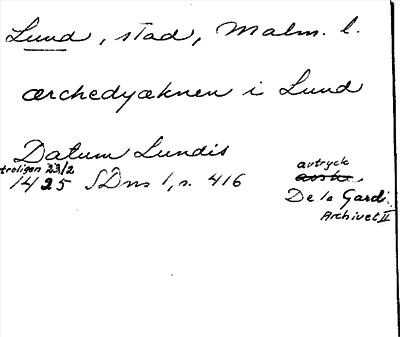 Lund, stad, Malm. l.
ærchedyæknen i Lund
Datum Lundis
troligen 23/2
1425 SDns 1, s. 416
avtryck
De la Gardi.
Archivet II